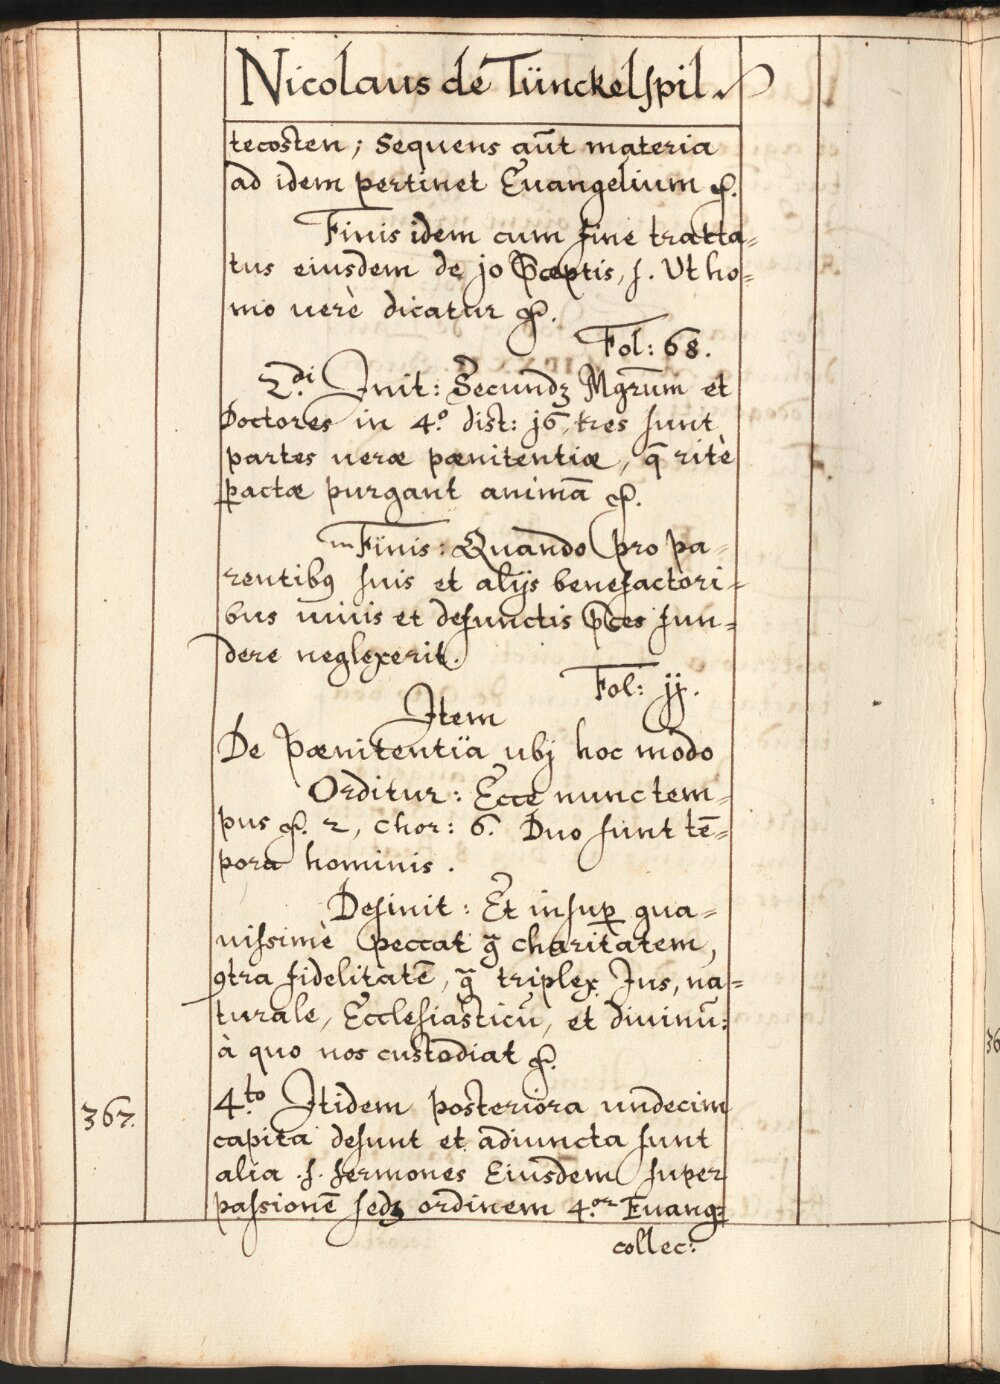 Nicolaus de Tünckelspil.
tecosten; Sequens aūt materia
ad idem pertinet Euangelium &.
Finis idem cum fine tracta=
tus eiusdem de jo p̄ceptis, s. Ut ho=
mo uerè dicatur &.
Fol: 68.
2.di Init: Secundz Mgrūm et
Doctores in 4.o dist: j6, tres sunt
partes ueræ pænitentiæ, q̄ ritè
ꝑactæ purgant animā &.
Finis: Quando pro pa=
rentibꝰ suis et alijs benefactori=
bus uiuis et defunctis p̄ces fun=
dere neglexerit.
Fol: jj.
Item
De Pænitentia ubj hoc modo
Orditur: Ecce nunc tem=
pus &. 2, Chor: 6. Duo sunt tē=
pora hominis.
Desinit: Et insuꝑ gua=
uissimè peccat ꝯ̄ charitatem,
ꝯtra fidelitatē, ꝯ̄ triplex Ius, na=
turale, Ecclesiasticū, et diuinū:
à quo nos custodiat &.
367. 4.to Itidem posteriora undecim
capita desunt et adiuncta sunt
alia .s. sermones Eiusdem super
passionē sedz ordinem 4.or Euang:
collec: